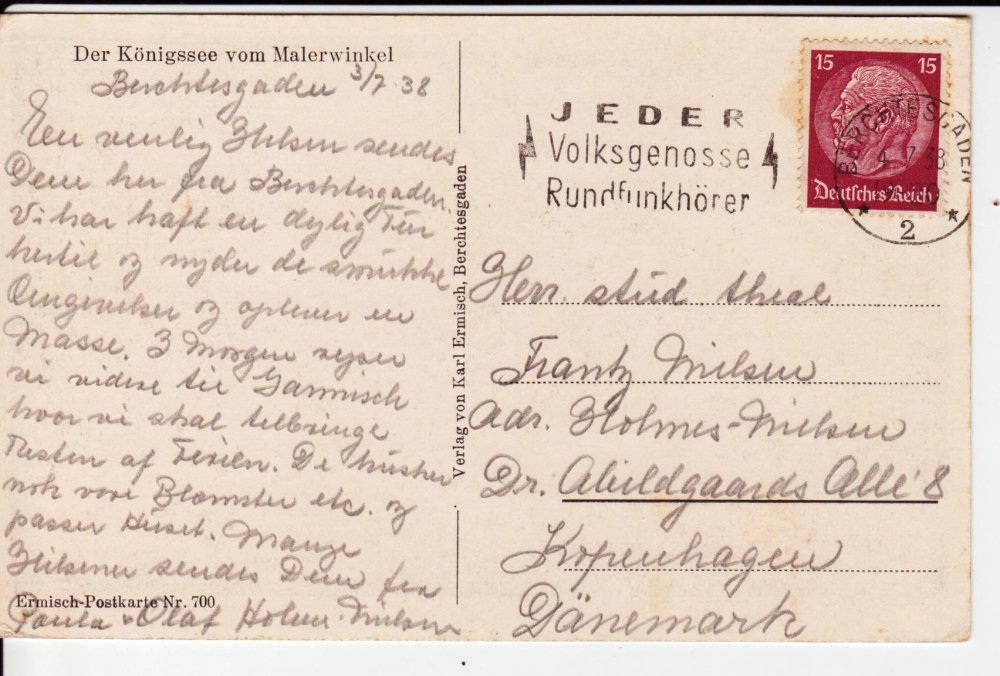 Der Königssee vom Malerwinkel
Berchtesgaden 3/7 38
Een venlig Hilsen sendes
Dem her fra Berchtesgaden.
Vi har haft en dejlig Tur
hertil og nyder de smukke
Omgivelser og oplever en
Masse. I Morgen rejser
vi videre til Garmisch
hvor vi skal tilbringe
Resten af Ferien. De husker
nok vore Blomster etc. og
passer Huset. Mange
Hilsener sendes Dem fra
Ermisch-Postkarte Nr. 700
Paula & Olaf Holm-Nielsen
Verlag von Karl Ermisch, Berchtesgaden
JEDER
Volksgenosse
Rundfunkhörer
15 15
Deutsches Reich
BERCHTESGADEN
4.7.38
2
Herr. stud theol
Frantz Nielsen
adr. Holmes-Nielsen
Dr. Abildgaards Allé 8
Kopenhagen
Dänemark